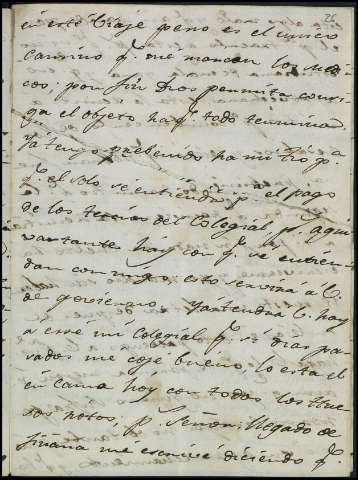 26
en este Viaje pero es el unico
camino q.e me marcan los medi
cos: por fin Dios permita consi
ga el objeto ha q.e todo terminar
Ya tengo prebenido ha mi tio p.a
q.e el solo se entienda p.a el pago
de los tercios del Colegial, p.s aqui
vastante hay con q.e se entien
dan conmigo: esto servirá a V.
de govierno. Ya tendra V. hay
a ese mi Colegial q.e si dias pa
sados me cojé bueno, lo esta el
en cama hoy con todos los hue
sos rotos, p.s Señor, llegado de
me escrive diciendo q.e